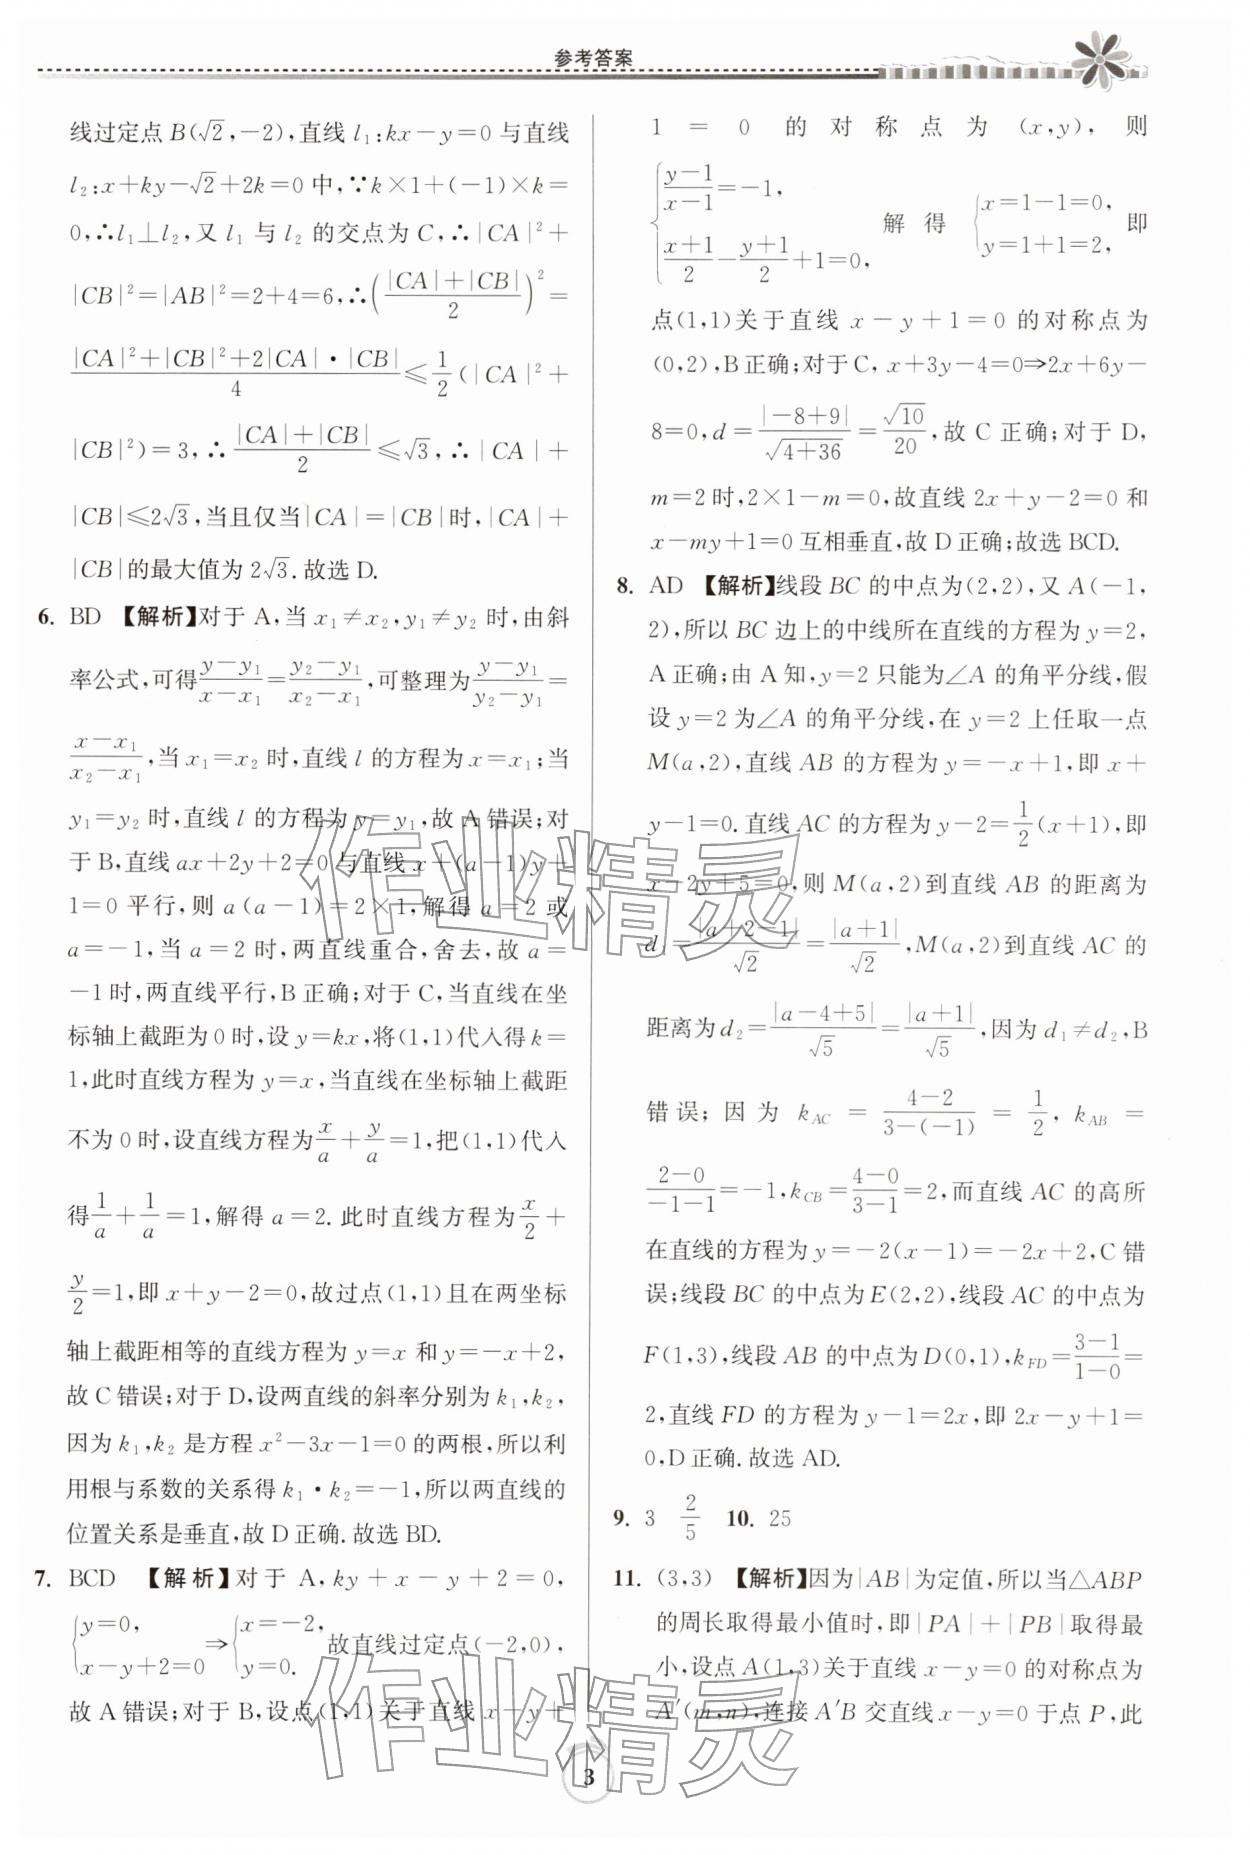 参考答案
线过定点 B(√2,-2),直线 l₁:kx-y=0 与直线
l₂:x+ky-√2+2k=0 中,∵k×1+(-1)×k=
0,∴l₁⊥l₂,又 l₁ 与 l₂ 的交点为 C,∴|CA|²+
|CB|²=|AB|²=2+4=6,∴((|CA|+|CB|)/2)²=
(|CA|²+|CB|²+2|CA|·|CB|)/4≤1/2(|CA|²+
|CB|²)=3,∴(|CA|+|CB|)/2≤√3,∴|CA|+
|CB|≤2√3,当且仅当|CA|=|CB|时,|CA|+
|CB|的最大值为 2√3.故选 D.
6. BD 【解析】对于 A,当 x₁≠x₂,y₁≠y₂ 时,由斜
率公式,可得(y-y₁)/(x-x₁)=(y₂-y₁)/(x₂-x₁),可整理为(y-y₁)/(y₂-y₁)=
(x-x₁)/(x₂-x₁),当 x₁=x₂ 时,直线 l 的方程为 x=x₁;当
y₁=y₂ 时,直线 l 的方程为 y=y₁,故 A 错误;对
于 B,直线 ax+2y+2=0 与直线 x+(a-1)y+
1=0 平行,则 a(a-1)=2×1,解得 a=2 或
a=-1,当 a=2 时,两直线重合,舍去,故 a=
-1 时,两直线平行,B 正确;对于 C,当直线在坐
标轴上截距为 0 时,设 y=kx,将(1,1)代入得 k=
1,此时直线方程为 y=x,当直线在坐标轴上截距
不为 0 时,设直线方程为x/a+y/a=1,把(1,1)代入
得1/a+1/a=1,解得 a=2. 此时直线方程为x/2+
y/2=1,即 x+y-2=0,故过点(1,1)且在两坐标
轴上截距相等的直线方程为 y=x 和 y=-x+2,
故 C 错误;对于 D,设两直线的斜率分别为 k₁,k₂,
因为 k₁,k₂ 是方程 x²-3x-1=0 的两根,所以利
用根与系数的关系得 k₁·k₂=-1,所以两直线的
位置关系是垂直,故 D 正确.故选 BD.
7. BCD 【解析】对于 A,ky+x-y+2=0,
{y=0, x-y+2=0⇒{x=-2, y=0. 故直线过定点(-2,0),
故 A 错误;对于 B,设点(1,1)关于直线 x-y+
1=0 的对称点为 (x,y),则
{(y-1)/(x-1)=-1, (x+1)/2-(y+1)/2+1=0, 解得 {x=1-1=0, y=1+1=2, 即
点(1,1)关于直线 x-y+1=0 的对称点为
(0,2),B 正确;对于 C,x+3y-4=0⇒2x+6y-
8=0,d=|-8+9|/√(4+36)=√10/20,故 C 正确;对于 D,
m=2 时,2×1-m=0,故直线 2x+y-2=0 和
x-my+1=0 互相垂直,故 D 正确;故选 BCD.
8. AD 【解析】线段 BC 的中点为(2,2),又 A(-1,
2),所以 BC 边上的中线所在直线的方程为 y=2,
A 正确;由 A 知,y=2 只能为∠A 的角平分线,假
设 y=2 为∠A 的角平分线,在 y=2 上任取一点
M(a,2),直线 AB 的方程为 y=-x+1,即 x+
y-1=0.直线 AC 的方程为 y-2=1/2(x+1),即
x-2y+5=0,则 M(a,2)到直线 AB 的距离为
d₁=|a+2-1|/√2=|a+1|/√2,M(a,2)到直线 AC 的
距离为 d₂=|a-4+5|/√5=|a+1|/√5,因为 d₁≠d₂,B
错误;因为 k_AC=(4-2)/(3-(-1))=1/2,k_AB=
(2-0)/(-1-1)=-1,k_CB=(4-0)/(3-1)=2,而直线 AC 的高所
在直线的方程为 y=-2(x-1)=-2x+2,C 错
误;线段 BC 的中点为 E(2,2),线段 AC 的中点为
F(1,3),线段 AB 的中点为 D(0,1),k_FD=(3-1)/(1-0)=
2,直线 FD 的方程为 y-1=2x,即 2x-y+1=
0,D 正确.故选 AD.
9. 3 2/5 10. 25
11. (3,3) 【解析】因为|AB|为定值,所以当△ABP
的周长取得最小值时,即|PA|+|PB|取得最
小,设点 A(1,3)关于直线 x-y=0 的对称点为
A′(m,n),连接 A′B 交直线 x-y=0 于点 P,此
3
作业精灵
作业精灵